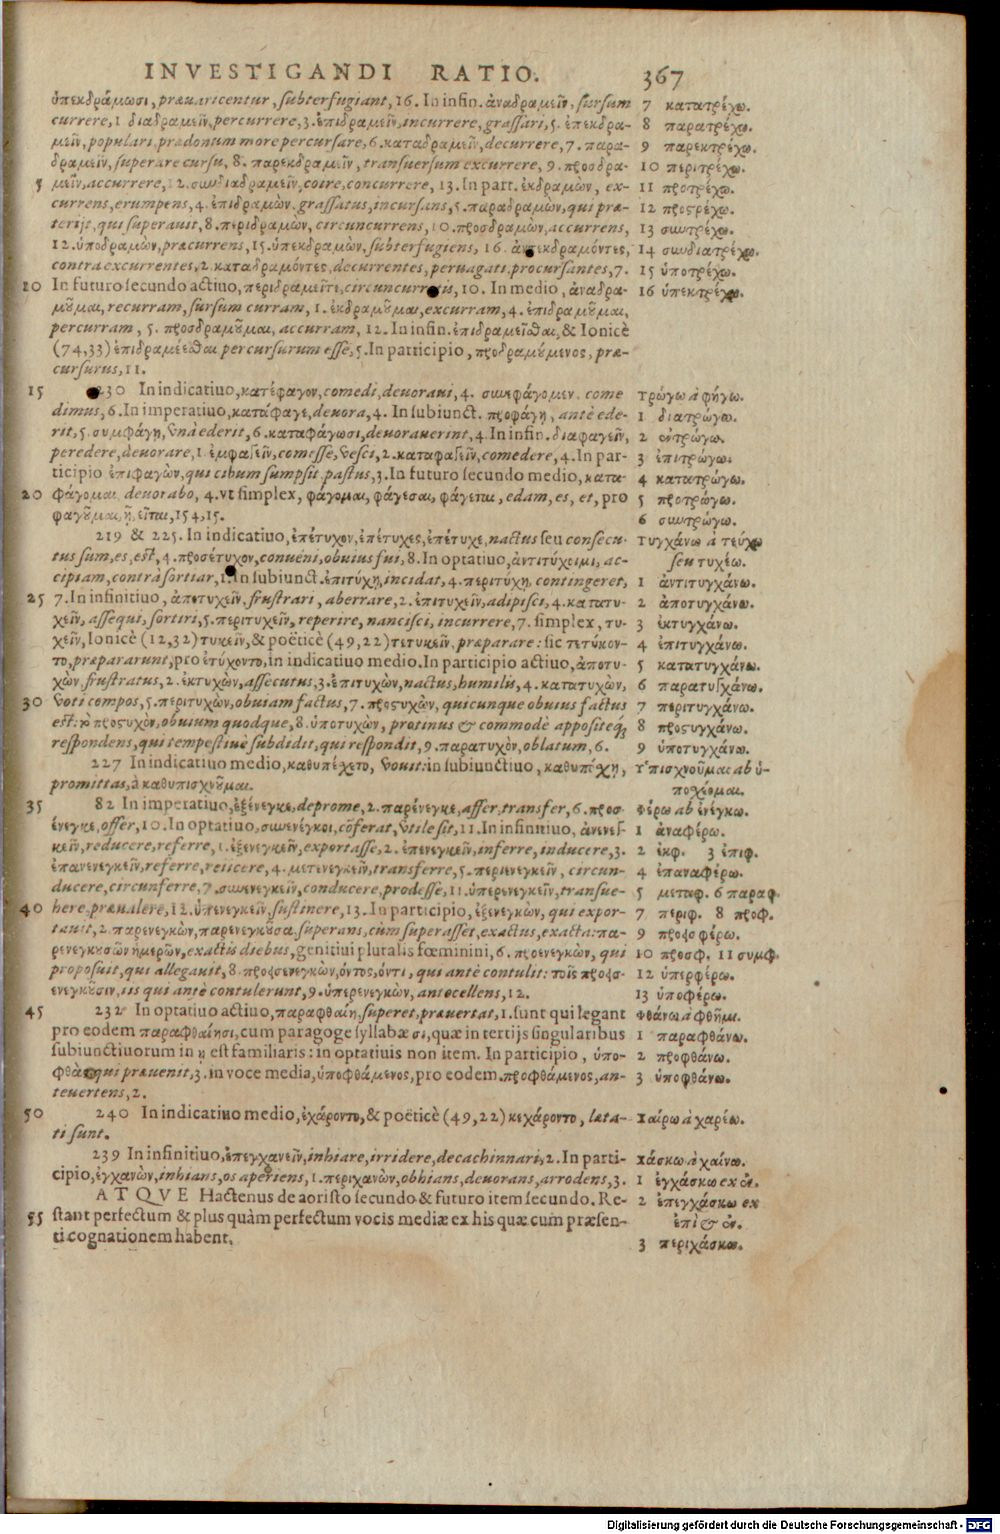 INVESTIGANDI RATIO. 367
ὑπεκδράμωσι, præuaricentur, subterfugiant, 16. In infin. ἀναδραμεῖν, sursum
currere, 1 διαδραμεῖν, percurrere, 3. ἐπιδραμεῖν, incurrere, grassari, 5. ἐπεκδρα-
μεῖν, populari, prædonum more percursare, 6. καταδραμεῖν, decurrere, 7. παρα-
δραμεῖν, superare cursu, 8. παρεκδραμεῖν, transuersum excurrere, 9. προσδρα-
5 μεῖν, accurrere, 12. συνδιαδραμεῖν, coire, concurrere, 13. In part. ἐκδραμων, ex-
currens, erumpens, 4. ἐπιδραμὼν, grassatus, incursans, 5. παραδραμὼν, qui præ-
terijt, qui superauit, 8. περιδραμὼν, circuncurrens, 10. προσδραμὼν, accurrens,
12. ὑποδραμὼν, præcurrens, 15. ὑπεκδραμων, subterfugiens, 16. ἀντεκδραμόντες,
contra excurrentes, 2. καταδραμόντες, decurrentes, peruagati, procursantes, 7.
10 In futuro secundo actiuo, περιδραμεῖτε, circuncurretis, 10. In medio, ἀναδρα-
μοῦμαι, recurram, sursum curram, 1. ἐκδραμοῦμαι, excurram, 4. ἐπιδραμοῦμαι,
percurram, 5. προσδραμοῦμαι, accurram, 12. In infin. ἐπιδραμεῖσθαι, & Ionicè
(74, 33) ἐπιδραμέεσθαι percursurum esse, 5. In participio, προδραμούμενος, præ-
cursurus, 11.
15 230 In indicatiuo, κατέφαγον, comedi, deuoraui, 4. συνεφάγομεν. come
dimus, 6. In imperatiuo, κατάφαγε, deuora, 4. In subiunct. προφάγῃ, antè ede-
rit, 5. συμφάγῃ, vnà ederit, 6. καταφάγωσι, deuorauerint, 4. In infin. διαφαγεῖν,
peredere, deuorare, 1. ἐμφαγεῖν, comesse, vesci, 2. καταφαγεῖν, comedere, 4. In par-
ticipio ἐπιφαγὼν, qui cibum sumpsit, pastus, 3. In futuro secundo medio, κατα-
20 φάγομαι, deuorabo, 4. vt simplex, φάγομαι, φάγεσαι, φάγεται, edam, es, et, pro
φαγοῦμαι, ῇ, εῖται, 154, 15.
219 & 225. In indicatiuo, ἐπέτυχον, ἐπέτυχες, ἐπέτυχε, nactus seu consecu-
tus sum, es, est, 4. προσέτυχον, conueni, obuius fui, 8. In optatiuo, ἀντιτύχοιμι, ac-
cipiam, contrà sortiar, 1. In subiunct. ἐπιτύχῃ, incidat, 4. περιτύχῃ, contingeret,
25 7. In infinitiuo, ἀποτυχεῖν, frustrari, aberrare, 2. ἐπιτυχεῖν, adipisci, 4. κατατυ-
χεῖν, assequi, sortiri, 5. περιτυχεῖν, reperire, nancisci, incurrere, 7. simplex, τυ-
χεῖν, Ionicè (12, 32) τυκεῖν, & poëticè (49, 22) τετυκεῖν, præparare: sic τετύκον-
το, præpararunt, pro ἐτύχοντο, in indicatiuo medio. In participio actiuo, ἀποτυ-
χὼν, frustratus, 2. ἐκτυχὼν, assecutus, 3. ἐπιτυχὼν, nactus, humilis, 4. κατατυχὼν,
30 voti compos, 5. περιτυχὼν, obuiam factus, 7. προςυχὼν, quicunque obuius factus
est: τὸ προςυχὸν, obuium quodque, 8. ὑποτυχὼν, protinus & commodè appositeq́;
respondens, qui tempestiuè subdidit, qui respondit, 9. παρατυχὸν, oblatum, 6.
227 In indicatiuo medio, καθυπέχετο, vouit: in subiunctiuo, καθυπέχῃ,
promittas, à καθυπισχνοῦμαι.
35 82 In imperatiuo, ἐξένεγκε, deprome, 2. παρένεγκε, affer, transfer, 6. προσ-
ένεγκε, offer, 10. In optatiuo, συνενέγκοι, cōferat, vtile sit, 11. In infinitiuo, ἀνενεγ-
κεῖν, reducere, referre, 1. ἐξενεγκεῖν, exportasse, 2. ἐπενεγκεῖν, inferre, inducere, 3.
ἐπανενεγκεῖν, referre, reiicere, 4. μετενεγκεῖν, transferre, 5. περιενεγκεῖν, circun-
ducere, circunferre, 7. συνενεγκεῖν, conducere, prodesse, 11. ὑπερενεγκεῖν, transue-
40 here, præualere, 12. ὑπενεγκεῖν, sustinere, 13. In participio, ἐξενεγκὼν, qui expor-
tauit, 2. παρενεγκὼν, παρενεγκοῦσα, superans, cùm superasset, exactus, exacta: πα-
ρενεγκουσῶν ἡμερῶν, exactis diebus, genitiui pluralis fœminini, 6. προενεγκὼν, qui
proposuit, qui allegauit, 8. προεισενεγκὼν, όντος, όντι, qui antè contulit: τοῖς προεισ-
ενεγκοῦσιν, iis qui antè contulerunt, 9. ὑπερενεγκὼν, antecellens, 12.
45 232 In optatiuo actiuo, παραφθαίη, superet, præuertat, 1. sunt qui legant
pro eodem παραφθαίησι, cum paragoge syllabæ σι, quæ in tertijs singularibus
subiunctiuorum in η est familiaris: in optatiuis non item. In participio, ὑπο-
φθὰς qui præuenit, 3. in voce media, ὑποφθάμενος, pro eodem. προφθάμενος, an-
teuertens, 2.
50 240 In indicatiuo medio, ἐχάροντο, & poëticè (49, 22) κεχάροντο, læta-
ti sunt.
239 In infinitiuo, ἐπεγχανεῖν, inhiare, irridere, decachinnari, 2. In parti-
cipio, ἐγχανὼν, inhians, os aperiens, 1. περιχανὼν, obhians, deuorans, arrodens, 3.
ATQVE Hactenus de aoristo secundo & futuro item secundo. Re-
55 stant perfectum & plus quàm perfectum vocis mediæ ex his quæ cum præsen-
ti cognationem habent.
7 κατατρέχω.
8 παρατρέχω.
9 παρεκτρέχω.
10 περιτρέχω.
11 προτρέχω.
12 προςρέχω.
13 συντρέχω.
14 συνδιατρέχω.
15 ὑποτρέχω.
16 ὑπεκτρέχω.
τρώγω à φήγω.
1 διατρώγω.
2 ἐντρώγω.
3 ἐπιτρώγω.
4 κατατρώγω.
5 προτρώγω.
6 συντρώγω.
τυγχάνω à τεύχω
seu τυχέω.
1 ἀντιτυγχάνω.
2 ἀποτυγχάνω.
3 ἐκτυγχάνω.
4 ἐπιτυγχάνω.
5 κατατυγχάνω.
6 παρατυγχάνω.
7 περιτυγχάνω.
8 προςυγχάνω.
9 ὑποτυγχάνω.
ὑπισχνοῦμαι ab ὑ-
ποχέομαι.
φέρω ab ἐνέγκω.
1 ἀναφέρω.
2 ἐκφ. 3 ἐπιφ.
4 ἐπαναφέρω.
5 μεταφ. 6 παραφ.
7 περιφ. 8 προφ.
9 προεισφέρω.
10 προσφ. 11 συμφ.
12 ὑπερφέρω.
13 ὑποφέρω.
φθάνω à φθῆμι.
1 παραφθάνω.
2 προφθάνω.
3 ὑποφθάνω.
χαίρω à χαρέω.
χάσκω à χαίνω.
1 ἐγχάσκω ex ἐν.
2 ἐπεγχάσκω ex
ἐπὶ & ἐν.
3 περιχάσκω.
Digitalisierung gefördert durch die Deutsche Forschungsgemeinschaft - DFG